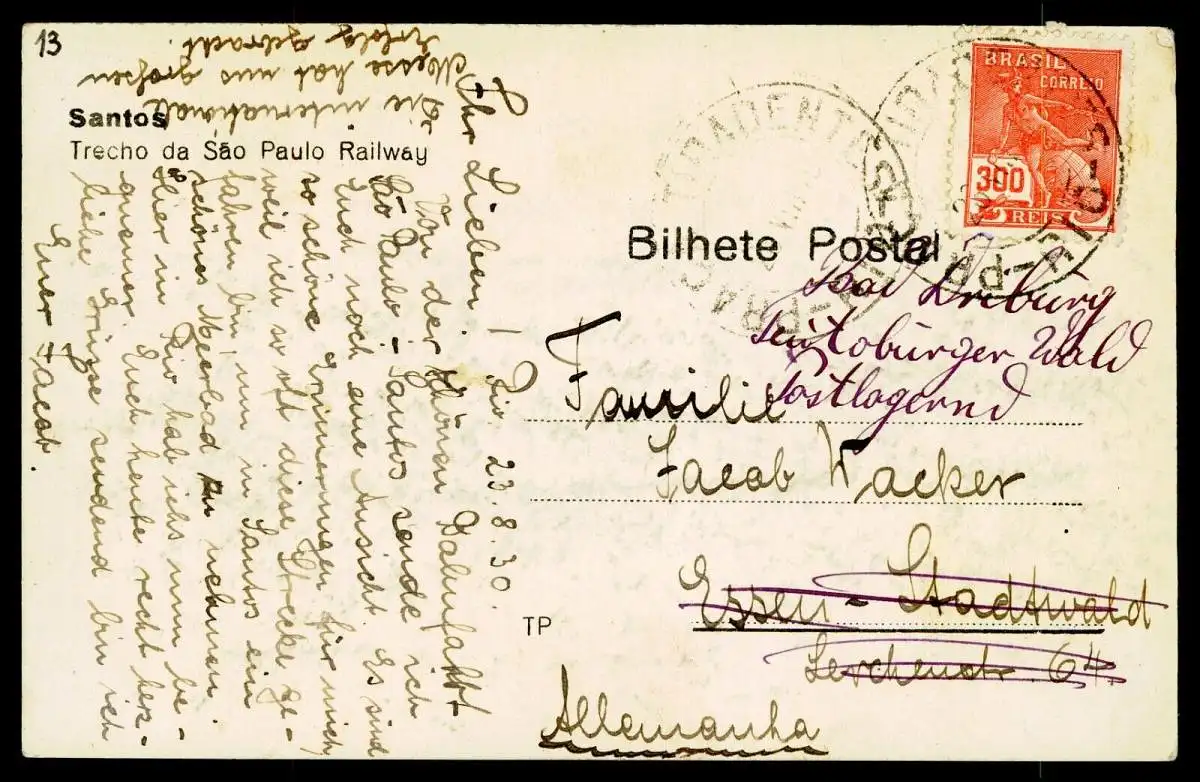 13
Santos
Trecho da São Paulo Railway
Bilhete Postal
BRASIL
CORREIO
300
REIS
TP
Ihr Lieben! Rio 23.8.30.
Von der schönen Bahnfahrt
São Paulo - Santos sende ich
Euch noch eine Ansicht. Es sind
so schöne Erinnerungen für mich,
weil ich so oft diese Strecke ge-
fahren bin, um in Santos ein
schönes Meerbad zu nehmen.
Hier in Rio hab ichs nun be-
quemer. Euch heute recht herz-
liche Grüsse sendend bin ich
Euer Jacob.
Die internationale
Messe hat uns grossen
Erfolg gebracht.
Familie
Jacob Wacker
Essen - Stadtwald
Lerchenstr. 64.
Allemanha
Bad Driburg
Teutoburger Wald
Postlagernd